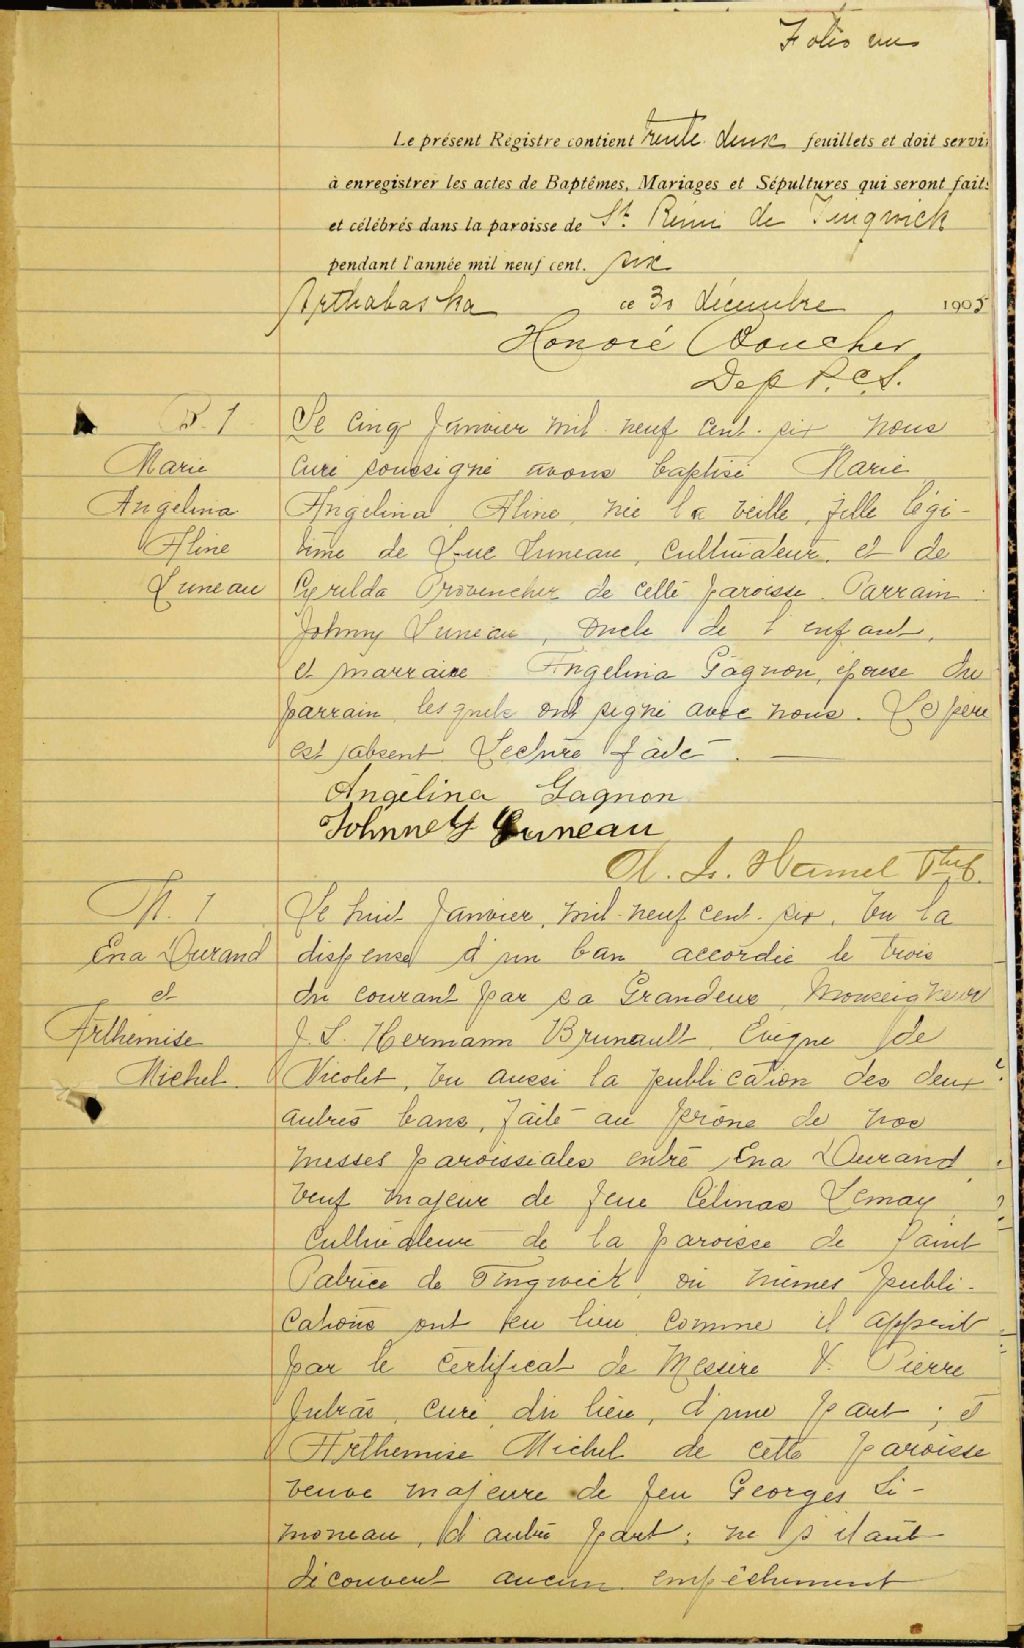 Folio un
Le présent Régistre contient trente-deux feuillets et doit servi
à enregistrer les actes de Baptêmes, Mariages et Sépultures qui seront faits
et célébrés dans la paroisse de St. Rémi de Tingwick
pendant l'année mil neuf cent. six
Arthabaska ce 30 décembre 1905
Honoré
Dep P.C.S.
B. 1
Marie
Angelina
Aline
Luneau
Le cinq Janvier mil neuf cent-six nous
curé soussigné avons baptisé Marie
Angelina, Aline, née la veille, fille légi-
time de Luc Luneau, cultivateur, et de
Cyrilda Provencher de cette paroisse. Parrain:
Johnny Luneau, oncle de l'enfant,
et marraine Angelina Gagnon, épouse du
parrain, lesquels ont signé avec nous. Le père
est absent. Lecture faite.
Angélina Gagnon
Johnney Luneau
L. Hamel Ptre
M. 1
Ena Durand
et
Arthemise
Michel
Le huit Janvier, mil-neuf cent-six, vu la
dispense d'un ban accordée le trois
du courant par sa Grandeur, Monseigneur
J. S. Hermann Brunault, Evêque de
Nicolet, vu aussi la publication des deux
autres bans, faite au prône de nos
messes paroissiales entre Ena Durand,
veuf majeur de feue Célinas Lemay,
cultivateur de la paroisse de Saint
Patrice de Tingwick, où mêmes publi-
cations ont eu lieu comme il appert
par le certificat de Messire V. Pierre
Jutras, curé du lieu, d'une part; et
Arthemise Michel de cette paroisse
veuve majeure de feu Georges Si-
moneau, d'autre part; ne s'étant
découvert aucun empêchement